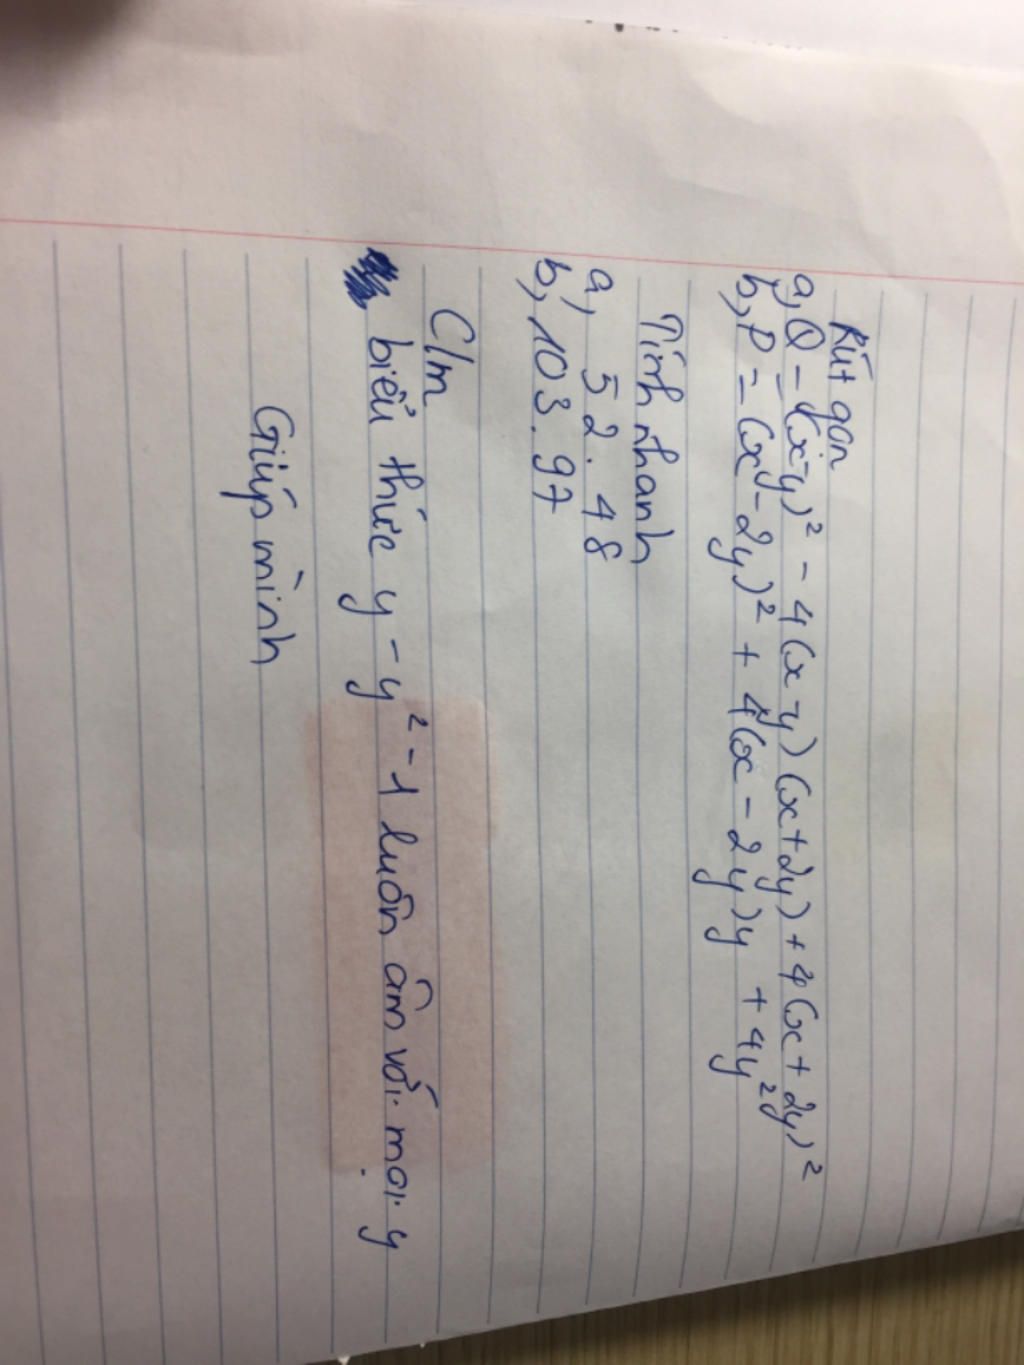 Rút gọn
a, Q = (x-y)² - 4(x-y)(x+2y) + 4(x+2y)²
b, P = (x-2y)² + 4(x-2y)y + 4y²
Tính nhanh
a, 52.48
b, 103.97
C/m
biểu thức y-y²-1 luôn âm với mọi y
Giúp mình